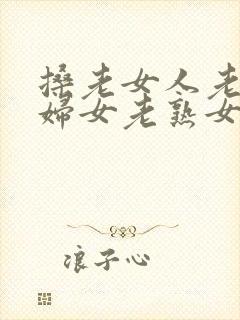 搡老女人老
妇女老熟女
浪子心